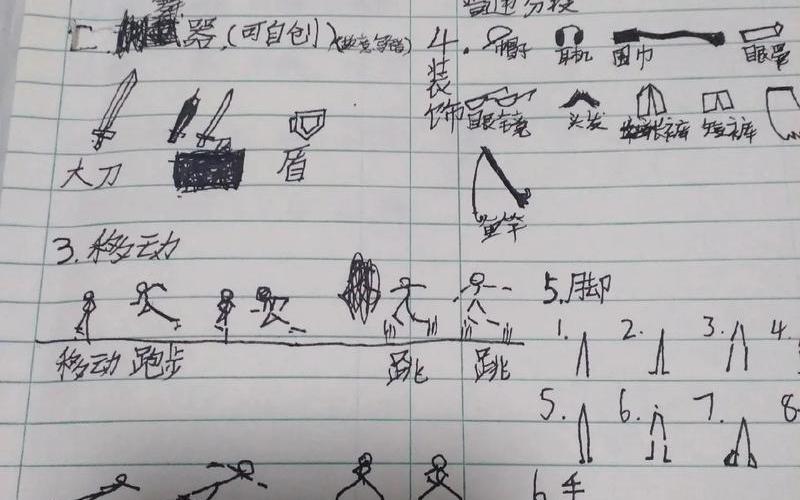 器(可自创)
大刀
盾
3.移动
移动 跑步
跳 跳
4.装饰
帽子 耳机 围巾 眼罩
眼镜 头发 长裤 短裤
鱼竿
5.脚
1. 2. 3. 4.
5. 6. 7. 8
6.手